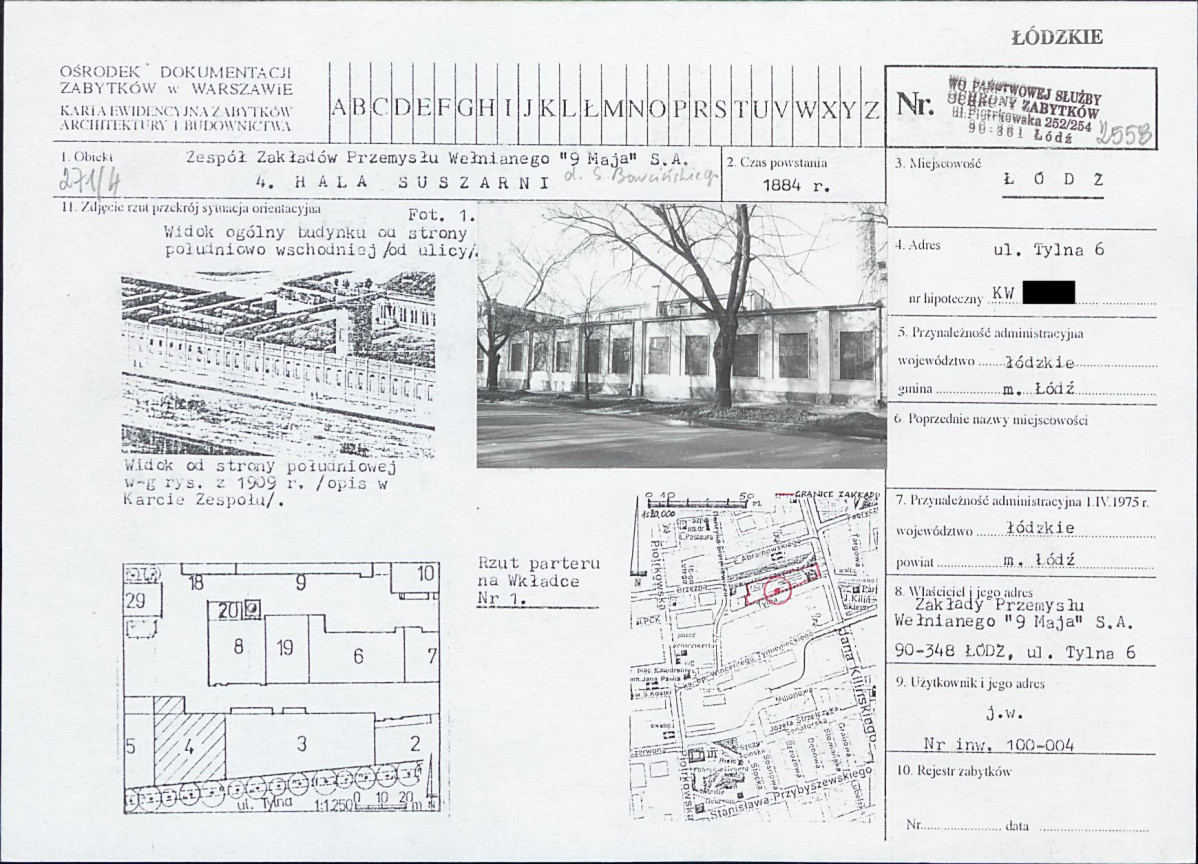 ŁÓDZKIE
OŚRODEK DOKUMENTACJI
ZABYTKÓW w WARSZAWIE
KARTA EWIDENCYJNA ZABYTKÓW
ARCHITEKTURY I BUDOWNICTWA
A B C D E F G H I J K L Ł M N O P R S T U V W X Y Z
Nr.
WO PAŃSTWOWEJ SŁUŻBY
OCHRONY ZABYTKÓW
ul.Piotrkowska 252/254
90-361 Łódź
2558
1. Obiekt
Zespół Zakładów Przemysłu Wełnianego "9 Maja" S.A.
271/4
4. HALA SUSZARNI
2. Czas powstania
1884 r.
3. Miejscowość
ŁÓDŹ
11. Zdjęcie rzut przekrój sytuacja orientacyjna
Fot. 1.
Widok ogólny budynku od strony
południowo wschodniej /od ulicy/.
Widok od strony południowej
w-g rys. z 1909 r. /opis w
Karcie Zespołu/.
4. Adres
ul. Tylna 6
nr hipoteczny KW
5. Przynależność administracyjna
województwo łódzkie
gmina m. Łódź
6. Poprzednie nazwy miejscowości
7. Przynależność administracyjna 1.IV.1975 r.
województwo łódzkie
powiat m. Łódź
8. Właściciel i jego adres
Zakłady Przemysłu
Wełnianego "9 Maja" S.A.
90-348 ŁÓDŹ, ul. Tylna 6
9. Użytkownik i jego adres
j.w.
Nr inw. 100-004
10. Rejestr zabytków
Nr. data
Rzut parteru
na Wkładce
Nr 1.
18 9 10
29 20
8 19 6 7
5 4 3 2
ul. Tylna 1:1250 0 10 20 m N
0 10 50
1:20,000
GRANICE ZAKŁADU
N
Piotrkowska
Abramowskiego
Tylna
Targowa
Brzeźna
PCK
Jana Kilińskiego
Milionowa
Józefa Strzelczyka
Senatorska
Piotrkowska
Stanisława Przybyszewskiego